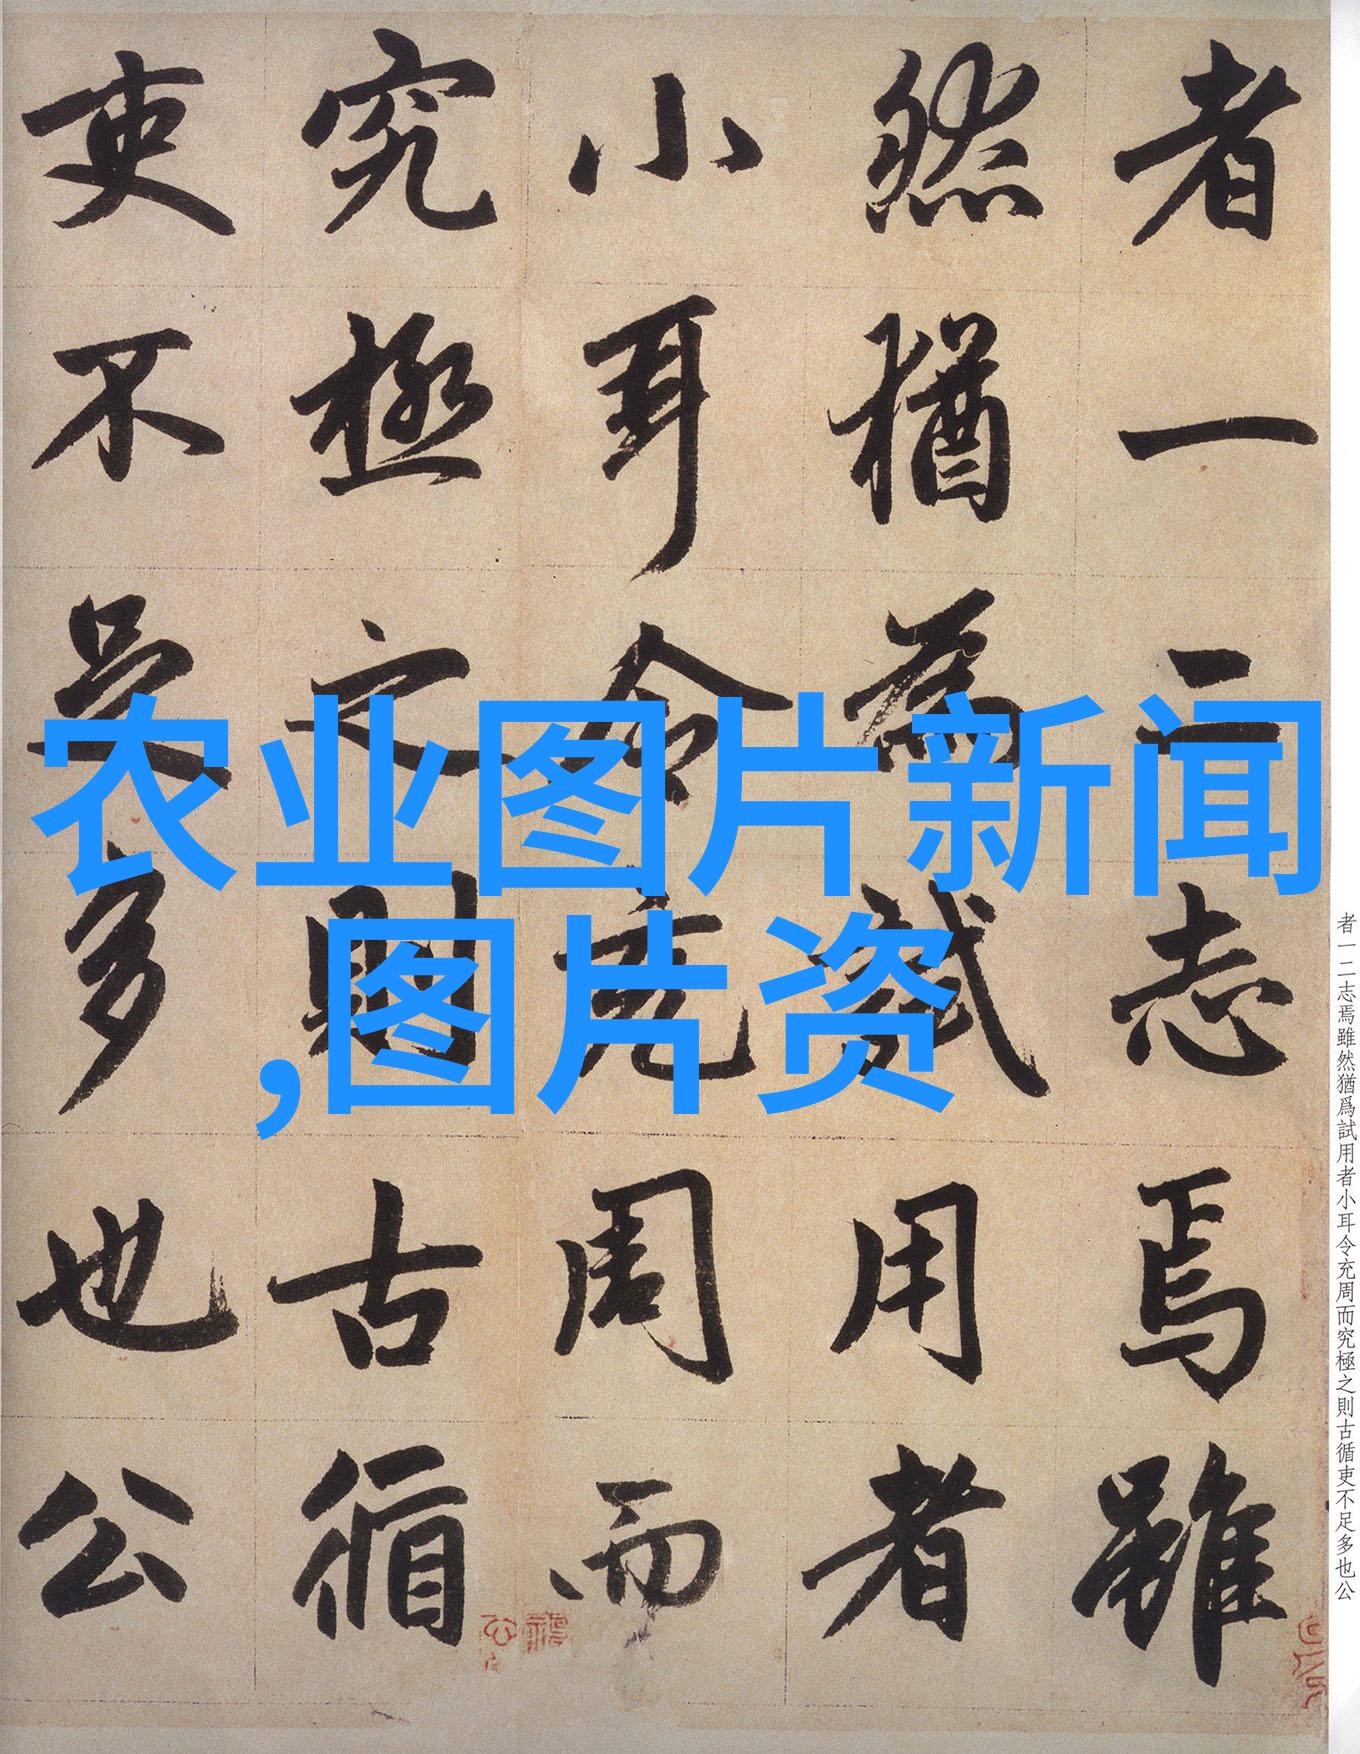 者一二志焉雖
然猶為試用者
小耳令充周而
究極之則古循
吏不足多也公
农业图片新闻
,图片资
者一二志焉雖然猶爲試用者小耳令充周而究極之則古循吏不足多也公